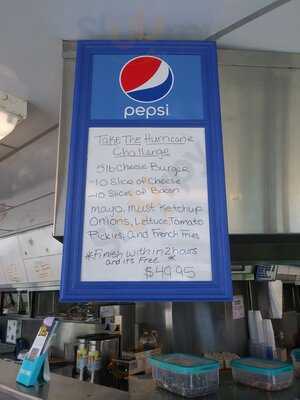 pepsi
Take The Hurricane
Challenge
5lb Cheese Burger
-10 Slice of Cheese
-10 Slices of Bacon
Mayo, Must Ketchup
Onions, Lettuce, Tomato
Pickles, and French Fries
*Finish within 2 hours
and its Free *
$49.95